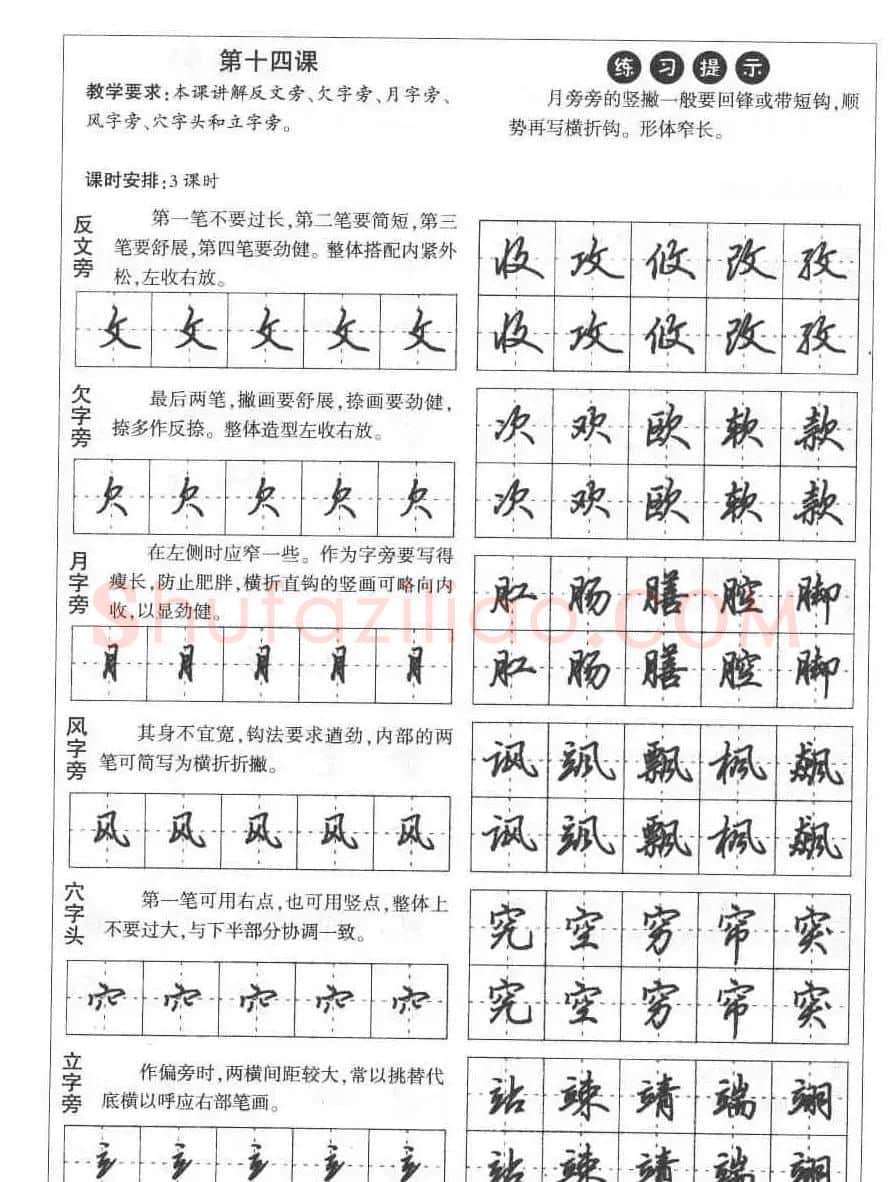 第十四课
教学要求:本课讲解反文旁、欠字旁、月字旁、
风字旁、穴字头和立字旁。
课时安排:3课时
练习提示
月旁旁的竖撇一般要回锋或带短钩,顺
势再写横折钩。形体窄长。
反文旁
第一笔不要过长,第二笔要简短,第三
笔要舒展,第四笔要劲健。整体搭配内紧外
松,左收右放。
攵 攵 攵 攵 攵
收 攻 攸 改 孜
收 攻 攸 改 孜
欠字旁
最后两笔,撇画要舒展,捺画要劲健,
捺多作反捺。整体造型左收右放。
欠 欠 欠 欠 欠
次 欢 欧 软 款
次 欢 欧 软 款
月字旁
在左侧时应窄一些。作为字旁要写得
瘦长,防止肥胖,横折直钩的竖画可略向内
收,以显劲健。
月 月 月 月 月
肛 肠 膳 腔 脚
肛 肠 膳 腔 脚
风字旁
其身不宜宽,钩法要求遒劲,内部的两
笔可简写为横折折撇。
风 风 风 风 风
讽 飒 飘 枫 飙
讽 飒 飘 枫 飙
穴字头
第一笔可用右点,也可用竖点,整体上
不要过大,与下半部分协调一致。
穴 穴 穴 穴 穴
究 空 穷 帘 突
究 空 穷 帘 突
立字旁
作偏旁时,两横间距较大,常以挑替代
底横以呼应右部笔画。
立 立 立 立 立
站 竦 靖 端 翊
站 竦 靖 端 翊
Shufaziliao.COM